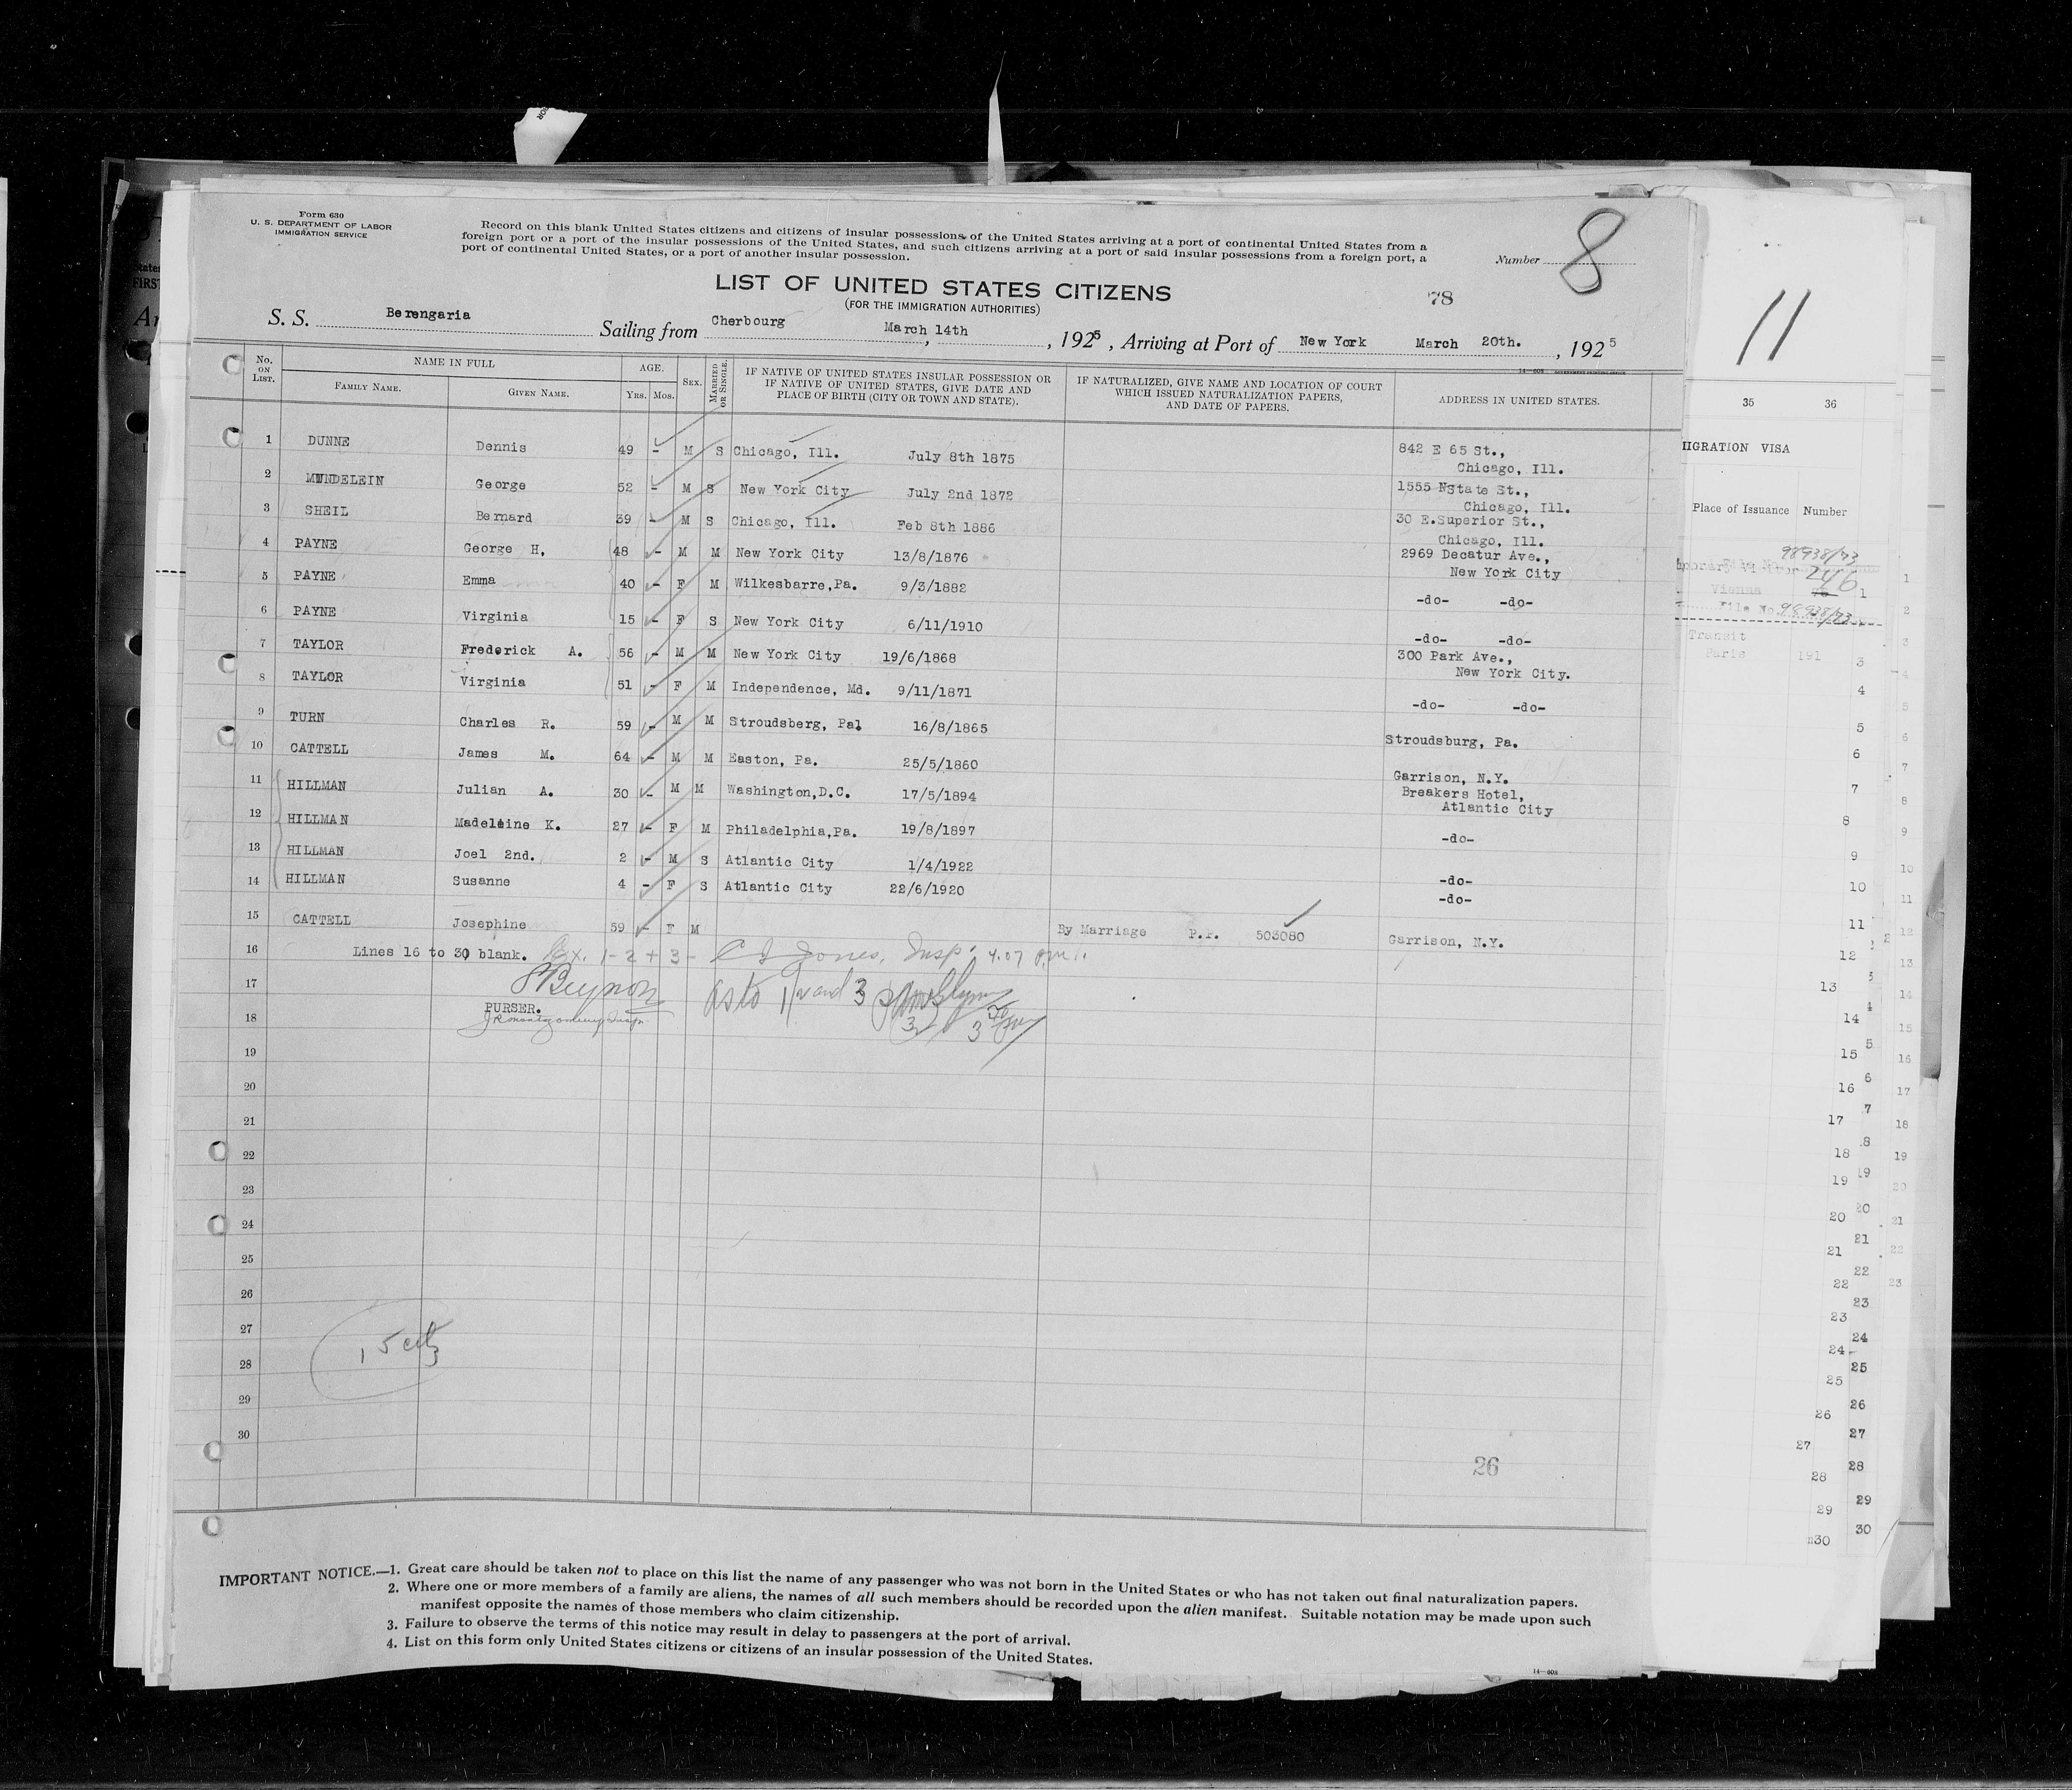 Form 630
U. S. DEPARTMENT OF LABOR
IMMIGRATION SERVICE
Record on this blank United States citizens and citizens of insular possessions of the United States arriving at a port of continental United States from a
foreign port or a port of the insular possessions of the United States, and such citizens arriving at a port of said insular possessions from a foreign port, a
port of continental United States, or a port of another insular possession.
Number 8
LIST OF UNITED STATES CITIZENS
(FOR THE IMMIGRATION AUTHORITIES)
78
S. S. Berengaria Sailing from Cherbourg March 14th, 1925, Arriving at Port of New York March 20th., 1925
14—608 GOVERNMENT PRINTING OFFICE
No. ON LIST. NAME IN FULL AGE. SEX. MARRIED OR SINGLE. IF NATIVE OF UNITED STATES INSULAR POSSESSION OR IF NATIVE OF UNITED STATES, GIVE DATE AND PLACE OF BIRTH (CITY OR TOWN AND STATE). IF NATURALIZED, GIVE NAME AND LOCATION OF COURT WHICH ISSUED NATURALIZATION PAPERS, AND DATE OF PAPERS. ADDRESS IN UNITED STATES.
FAMILY NAME. GIVEN NAME. YRS. MOS.
1 DUNNE Dennis 49 - M S Chicago, Ill. July 8th 1875 842 E 65 St.,
Chicago, Ill.
2 MUNDELEIN George 52 - M S New York City July 2nd 1872 1555 NState St.,
Chicago, Ill.
3 SHEIL Bernard 39 - M S Chicago, Ill. Feb 8th 1886 30 E.Superior St.,
Chicago, Ill.
4 PAYNE George H. 48 - M M New York City 13/8/1876 2969 Decatur Ave.,
New York City
5 PAYNE Emma 40 - F M Wilkesbarre,Pa. 9/3/1882 -do- -do-
6 PAYNE Virginia 15 - F S New York City 6/11/1910 -do- -do-
7 TAYLOR Frederick A. 56 - M M New York City 19/6/1868 300 Park Ave.,
New York City.
8 TAYLOR Virginia 51 - F M Independence, Md. 9/11/1871 -do- -do-
9 TURN Charles R. 59 - M M Stroudsberg, Pa. 16/8/1865 Stroudsburg, Pa.
10 CATTELL James M. 64 - M M Easton, Pa. 25/5/1860 Garrison, N.Y.
11 HILLMAN Julian A. 30 - M M Washington,D.C. 17/5/1894 Breakers Hotel,
Atlantic City
12 HILLMAN Madeleine K. 27 - F M Philadelphia,Pa. 19/8/1897 -do-
13 HILLMAN Joel 2nd. 2 - M S Atlantic City 1/4/1922 -do-
14 HILLMAN Susanne 4 - F S Atlantic City 22/6/1920 -do-
15 CATTELL Josephine 59 - F M By Marriage P.P. 503080 Garrison, N.Y.
16 Lines 16 to 30 blank. Ex. 1-2+3- Jones, Insp. 4.07 P.M.
17 Beynon as to 1 2 and 3
PURSER.
18
19
20
21
22
23
24
25
26
27
15
28
29
30
26
IMPORTANT NOTICE.—1. Great care should be taken not to place on this list the name of any passenger who was not born in the United States or who has not taken out final naturalization papers.
2. Where one or more members of a family are aliens, the names of all such members should be recorded upon the alien manifest. Suitable notation may be made upon such
manifest opposite the names of those members who claim citizenship.
3. Failure to observe the terms of this notice may result in delay to passengers at the port of arrival.
4. List on this form only United States citizens or citizens of an insular possession of the United States.
14—608
11
35 36
IGRATION VISA
Place of Issuance Number
98938/73
246
Vienna
File No. 98938/73
Transit
Paris 191